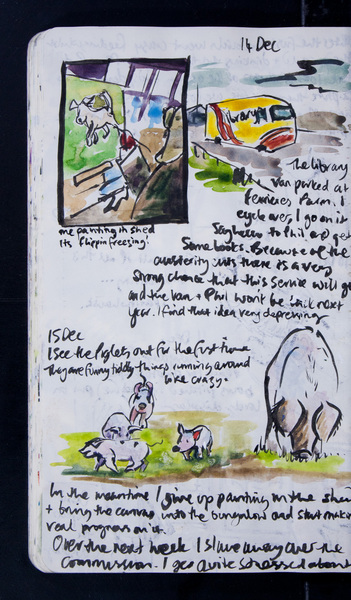 14 Dec
Library
The library
van parked at
Ferrieres Farm. I
cycle over, I go on it
Say hello to Phil and get
Some books. Because of the
austerity cuts there is a very
Strong chance that this service will go
and the van + Phil won't be back next
year. I find that idea very depressing
me painting in shed
Its 'flippin freezing'
15 Dec
I see the Piglets out for the first time
They are funny tiddly things running around
like crazy.
In the meantime I give up painting in the shed
+ bring the canvas into the bungalow and start make
real progress on it.
Over the next week I slave away over the
Commission. I get quite stressed about